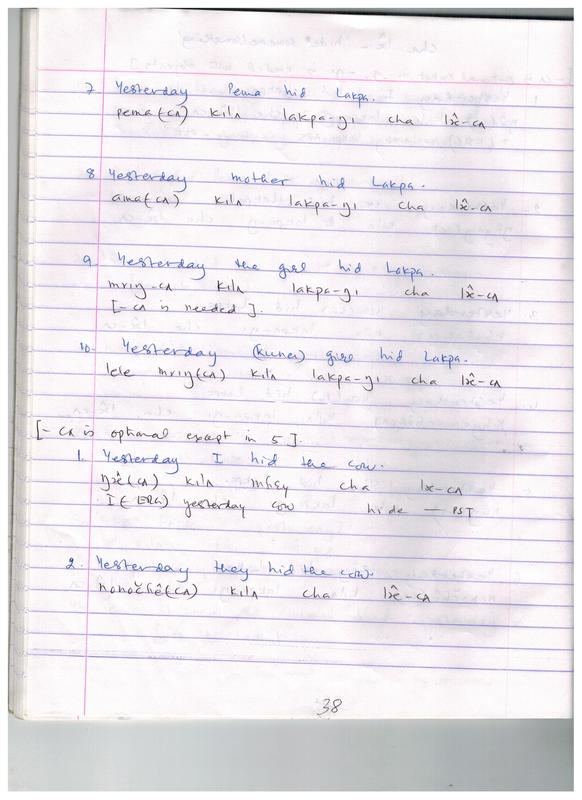 7 Yesterday Pema hid Lakpa.
pema(-cʌ) kilʌ lakpa-ɲi cha lɔ̂-cʌ
8 Yesterday mother hid Lakpa.
ama(-cʌ) kilʌ lakpa-ɲi cha lɔ̂-cʌ
9 Yesterday the girl hid Lakpa.
mriŋ-cʌ kilʌ lakpa-ɲi cha lɔ̂-cʌ
[-cʌ is needed].
10- Yesterday girl hid Lakpa.
lele mriŋ(-cʌ) kilʌ lakpa-ɲi cha lɔ̂-cʌ
[-cʌ is optional except in 5].
1. Yesterday I hid the cow.
kilʌ cha
I(-ERG) yesterday cow hide - PST
2. Yesterday they hid the cow.
kilʌ cha lɔ̂-cʌ
38